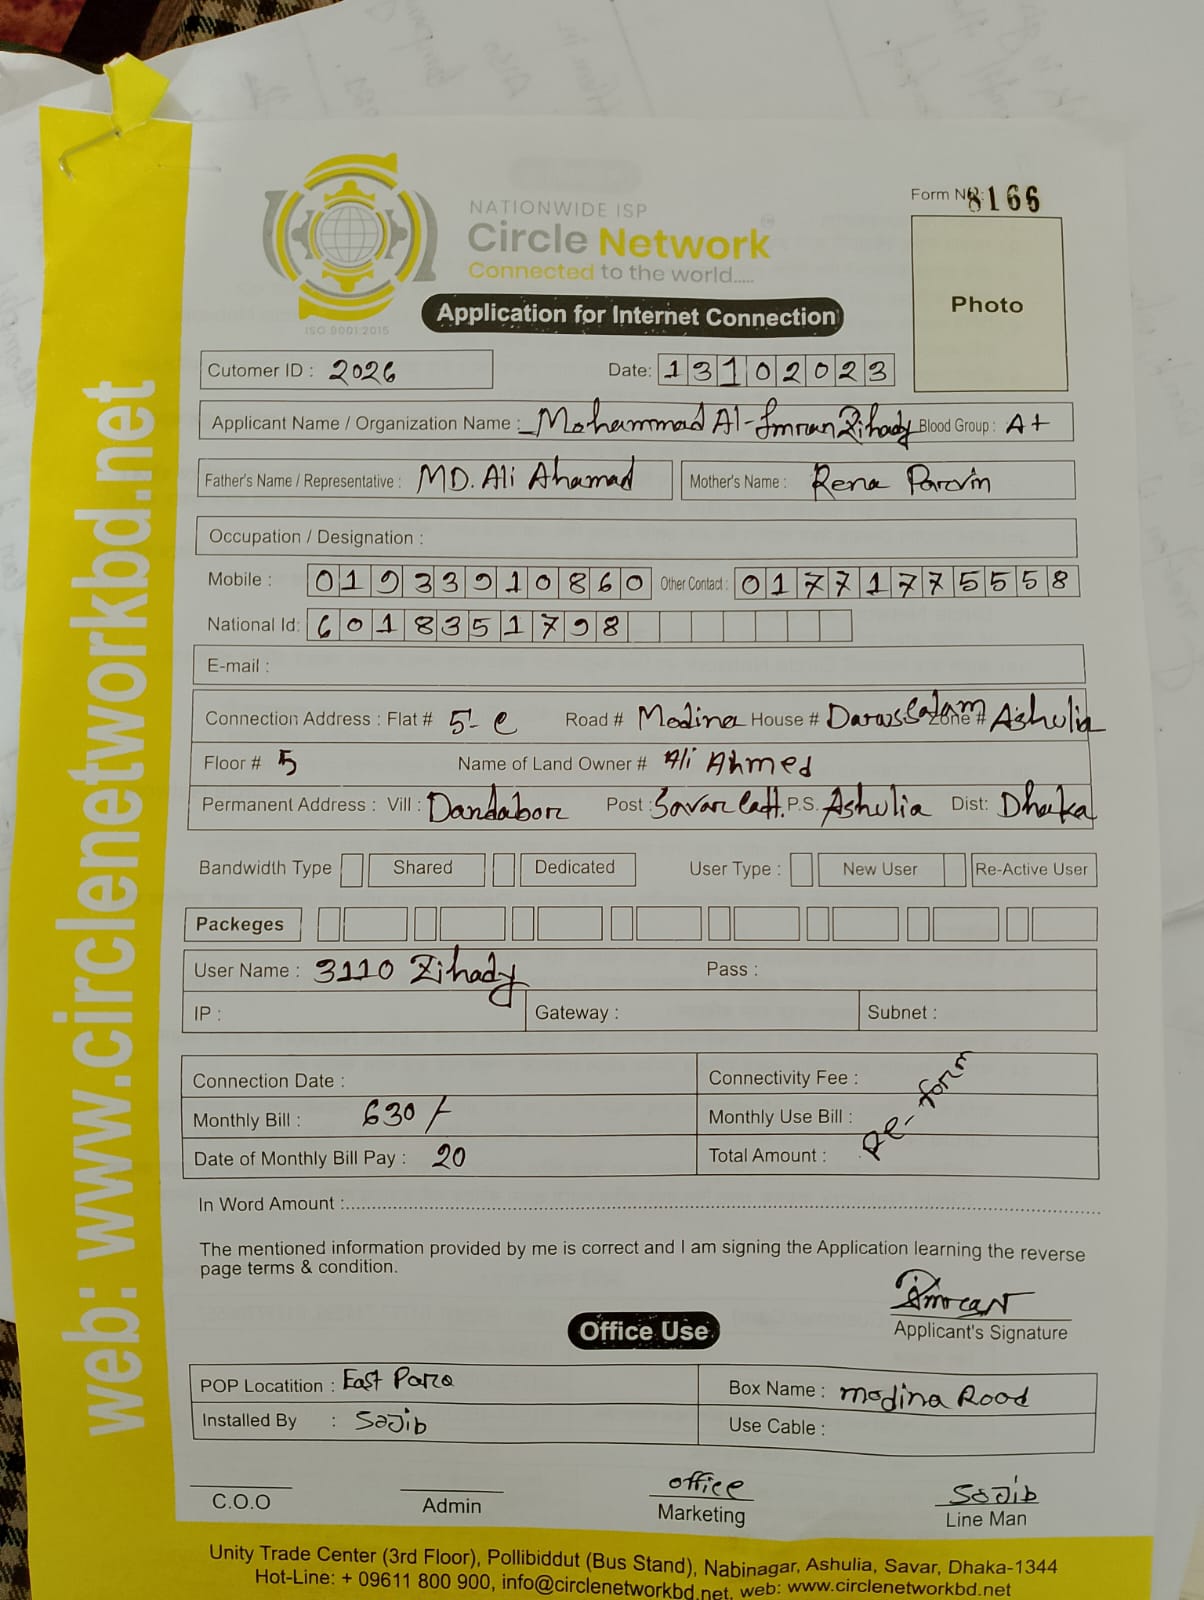 web: www.circlenetworkbd.net
NATIONWIDE ISP
Circle Network
Connected to the world.....
ISO 9001:2015
Form No: 8166
Photo
Application for Internet Connection
Cutomer ID : 2026
Date: 13102023
Applicant Name / Organization Name : Mohammad Al-Imran Zihady Blood Group : A+
Father's Name / Representative : MD. Ali Ahamad Mother's Name : Rena Parvin
Occupation / Designation :
Mobile : 01933910860 Other Contact : 01771775558
National Id: 6018351798
E-mail :
Connection Address : Flat # 5-e Road # Modina House # Darussalam Zone # Ashulia
Floor # 5 Name of Land Owner # Ali Ahmed
Permanent Address : Vill : Dandabor Post : Savar Catt. P.S. Ashulia Dist: Dhaka
Bandwidth Type Shared Dedicated User Type : New User Re-Active User
Packeges
User Name : 3110 Zihady Pass :
IP : Gateway : Subnet :
Connection Date : Connectivity Fee :
Monthly Bill : 630/- Monthly Use Bill :
Date of Monthly Bill Pay : 20 Total Amount :
Re-form
In Word Amount :
The mentioned information provided by me is correct and I am signing the Application learning the reverse
page terms & condition.
Imran
Applicant's Signature
Office Use
POP Locatition : East Para Box Name : modina Rood
Installed By : Sajib Use Cable :
office Sajib
C.O.O Admin Marketing Line Man
Unity Trade Center (3rd Floor), Pollibiddut (Bus Stand), Nabinagar, Ashulia, Savar, Dhaka-1344
Hot-Line: + 09611 800 900, info@circlenetworkbd.net, web: www.circlenetworkbd.net